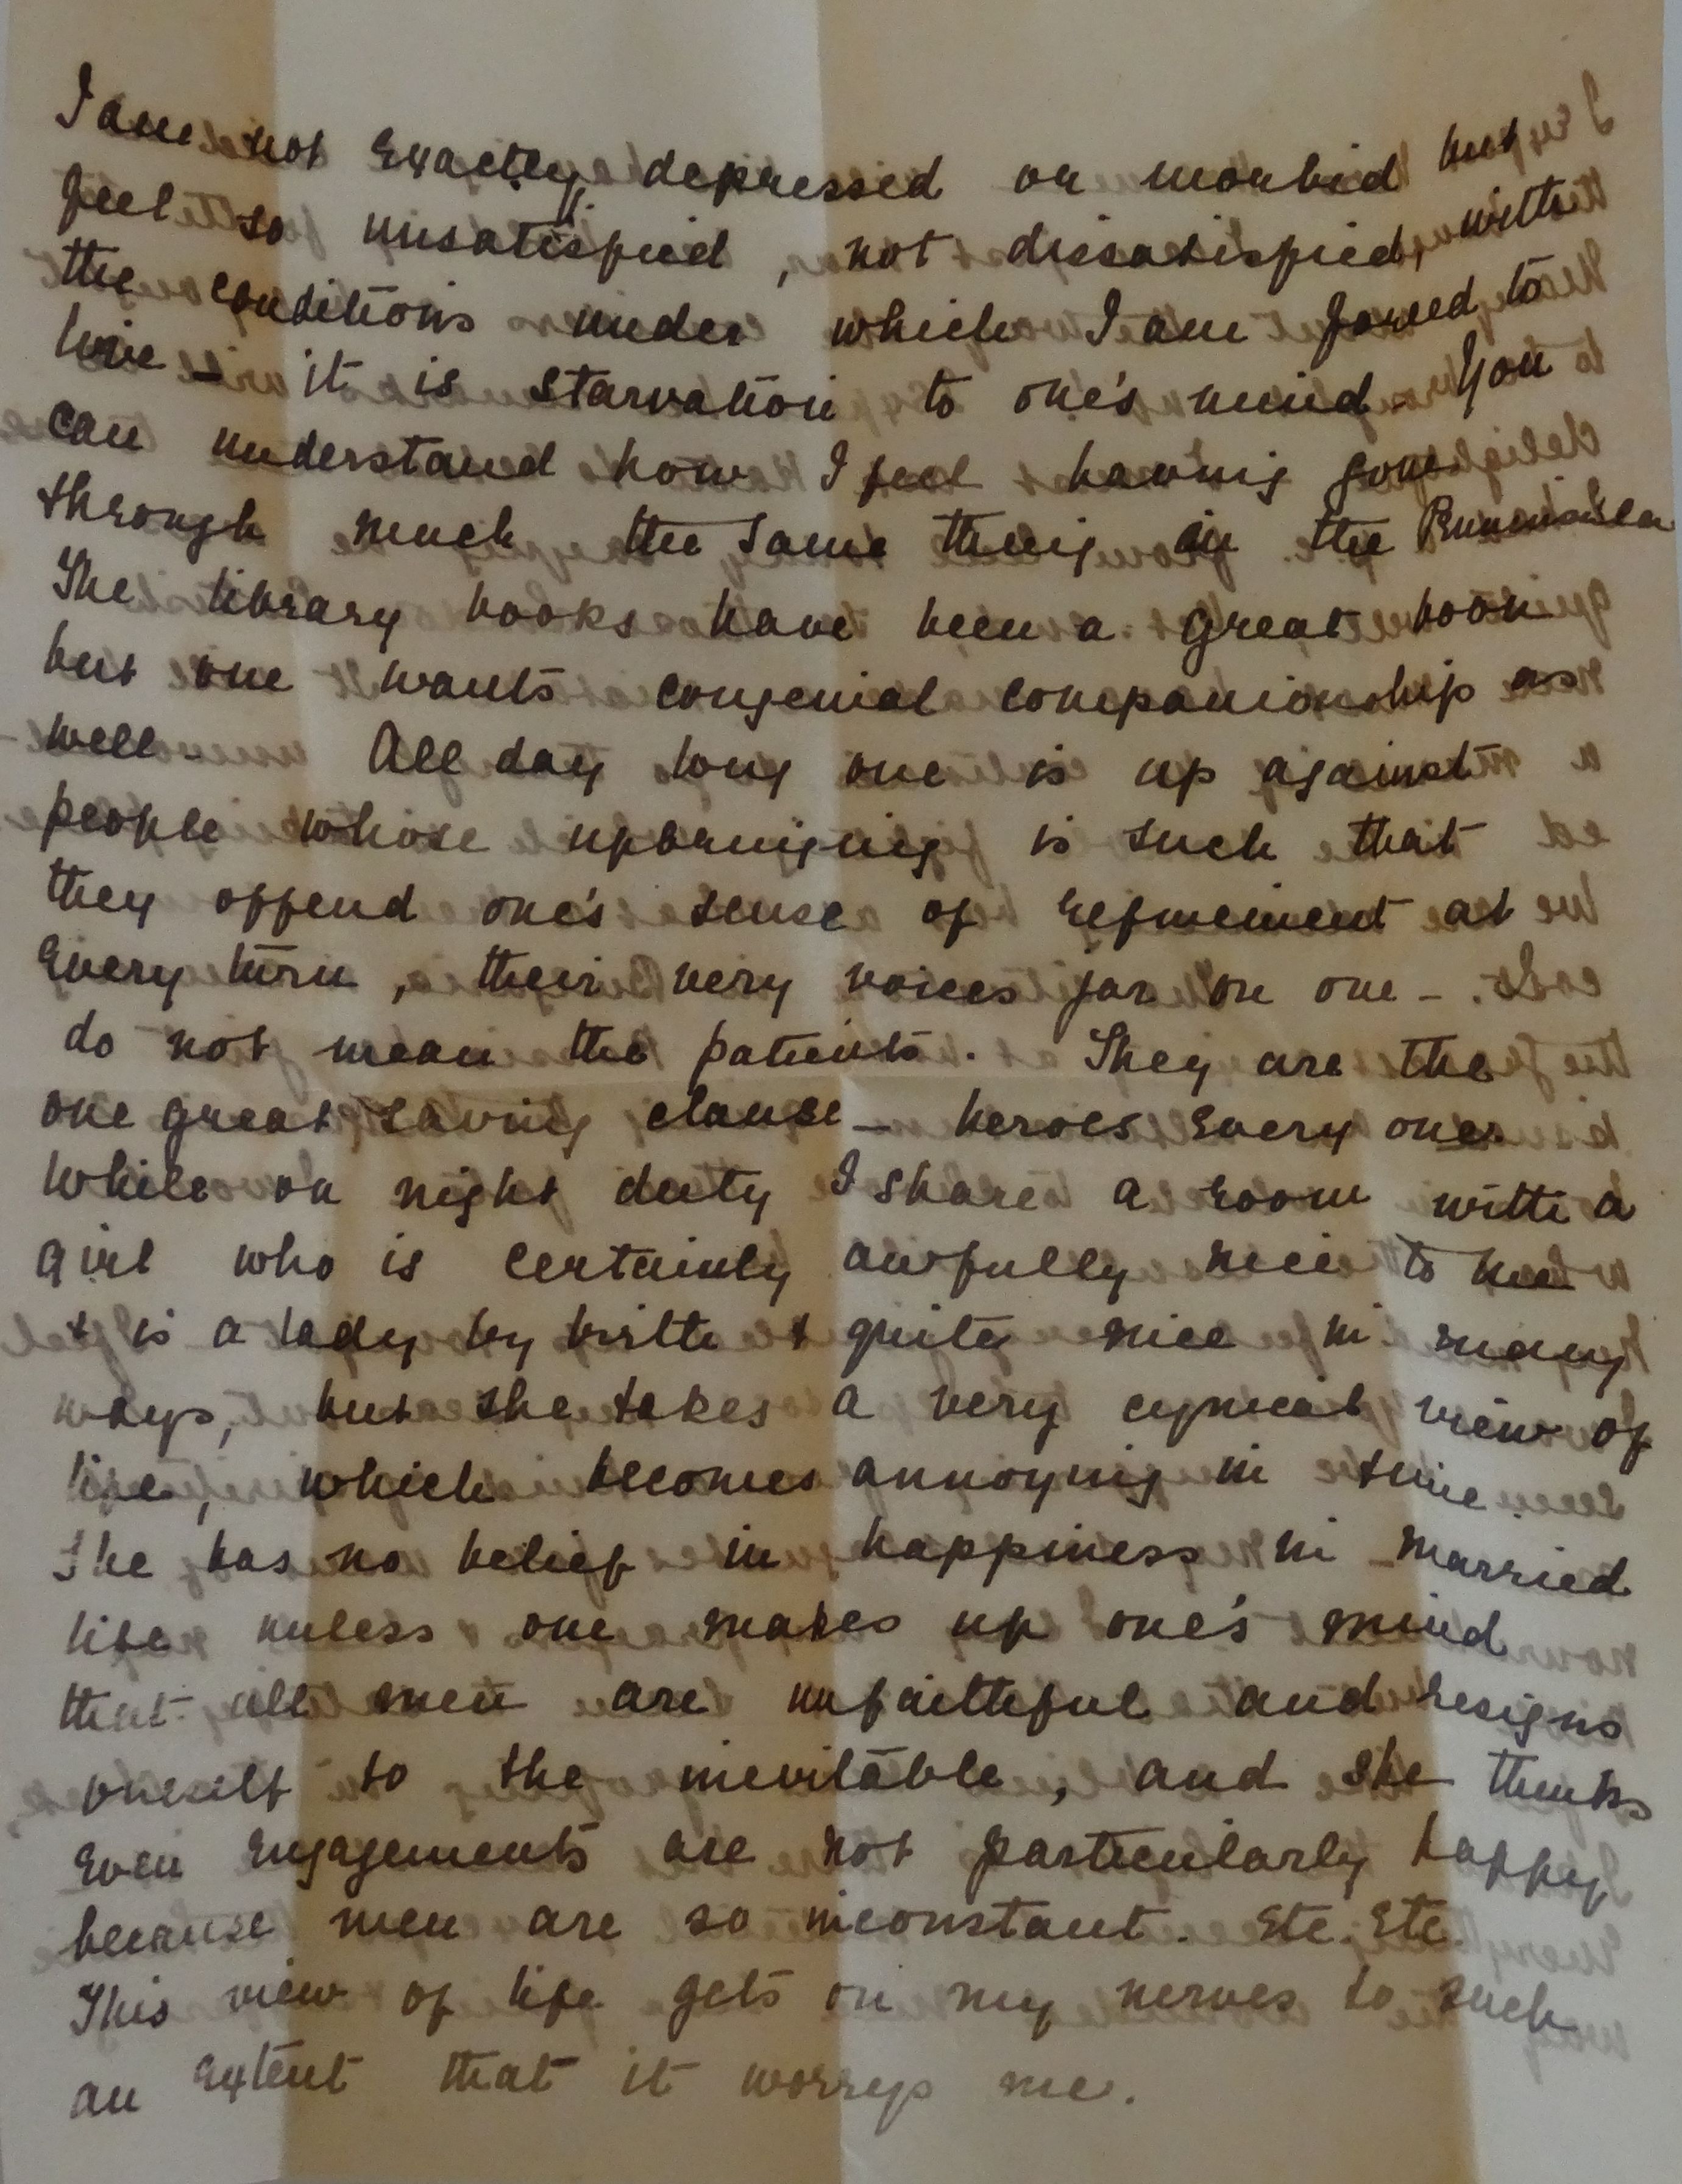 I am not exactly depressed or morbid but
feel so unsatisfied, not dissatisfied, with
the conditions under which I am forced to
live – it is starvation to one's mind – You
can understand how I feel having gone
through much the same thing in the
The library books have been a great boon
but one wants congenial companionship as
well – All day long one is up against
people whose upbringing is such that
they offend one's sense of refinement at
every turn, their very voices jar on one –.
do not mean the patients. They are the
one great saving clause – heroes every one.
While on night duty I share a room with a
girl who is certainly awfully nice to me
& is a lady by birth & quite nice in many
ways, but she takes a very cynical view of
life, which becomes annoying in time.
She has no belief in happiness in married
life unless one makes up one's mind
that all men are unfaithful and resigns
oneself to the inevitable, and she thinks
even engagements are not particularly happy
because men are so inconstant. Etc. Etc.
This view of life gets on my nerves to such
an extent that it worrys me.